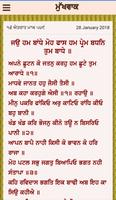 ਮੁੱਖਵਾਕ
28.January.2018
ਜਉ ਹਮ ਬਾਂਧੇ ਮੋਹ ਫਾਸ ਹਮ ਪ੍ਰੇਮ ਬਧਨਿ
ਤੁਮ ਬਾਧੇ ॥
ਅਪਨੇ ਛੂਟਨ ਕੋ ਜਤਨੁ ਕਰਹੁ ਹਮ ਛੂਟੇ ਤੁਮ
ਆਰਾਧੇ ॥੧॥
ਮਾਧਵੇ ਜਾਨਤ ਹਹੁ ਜੈਸੀ ਤੈਸੀ ॥
ਅਬ ਕਹਾ ਕਰਹੁਗੇ ਐਸੀ ॥੧॥ ਰਹਾਉ ॥
ਮੀਨੁ ਪਕਰਿ ਫਾਂਕਿਓ ਅਰੁ ਕਾਟਿਓ ਰਾਂਧਿ ਕੀਓ
ਬਹੁ ਬਾਨੀ ॥
ਖੰਡ ਖੰਡ ਕਰਿ ਭੋਜਨੁ ਕੀਨੋ ਤਊ ਨ ਬਿਸਰਿਓ
ਪਾਨੀ ॥੨॥
ਆਪਨ ਬਾਪੈ ਨਾਹੀ ਕਿਸੀ ਕੋ ਭਾਵਨ ਕੋ ਹਰਿ
ਰਾਜਾ ॥
ਮੋਹ ਪਟਲ ਸਭੁ ਜਗਤੁ ਬਿਆਪਿਓ ਭਗਤ ਨਹੀ
ਸੰਤਾਪਾ ॥੩॥
ਕਹਿ ਰਵਿਦਾਸ ਭਗਤਿ ਇਕ ਬਾਢੀ ਅਬ ਇਹ ਕਾ
ਸਿਉ ਕਹੀਐ ॥